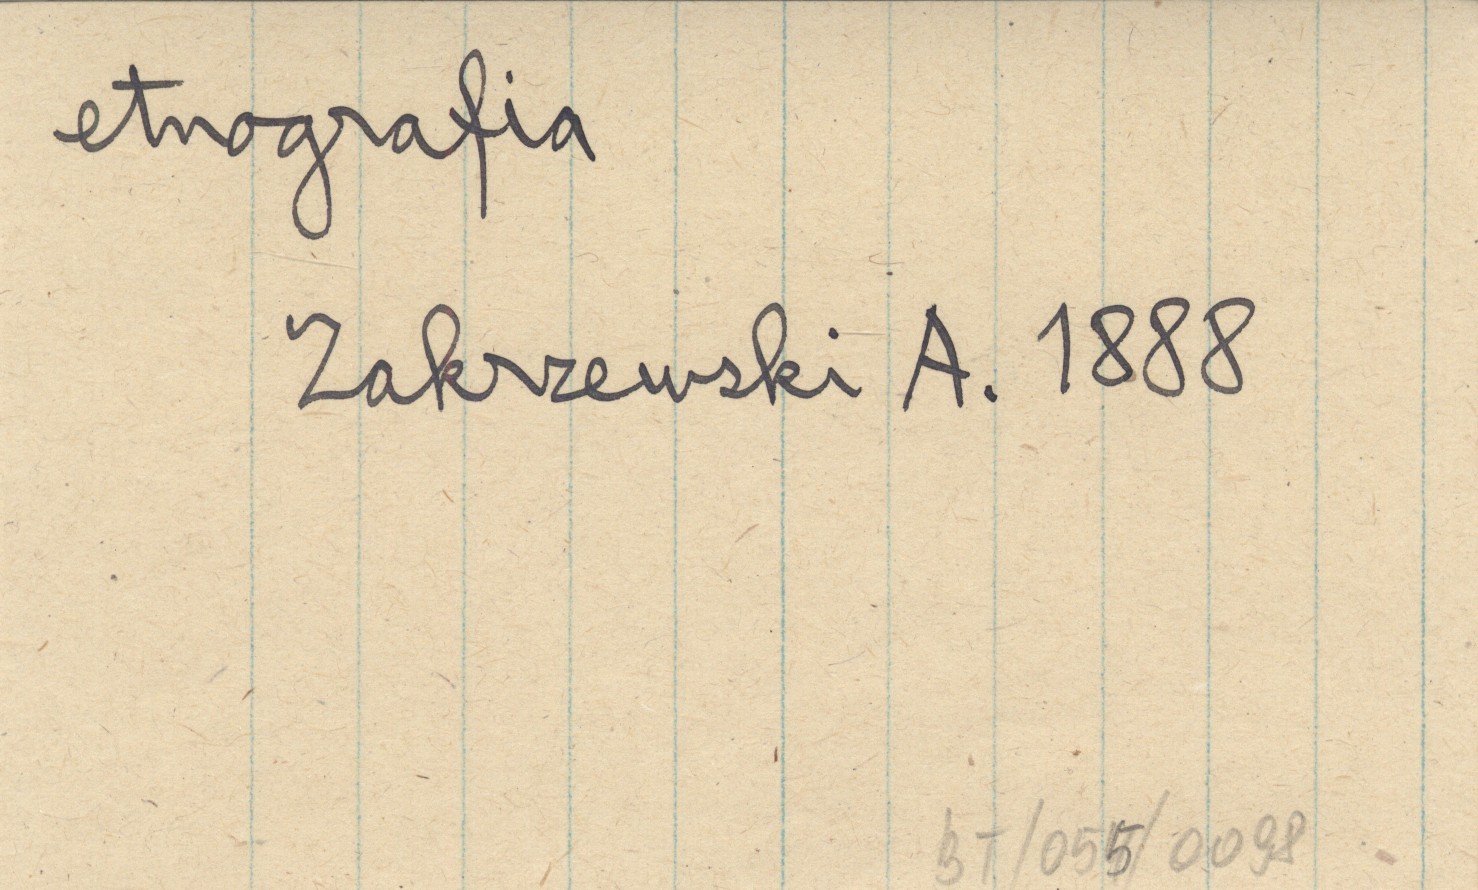 etnografia
Zakrzewski A. 1888
BT/055/0098